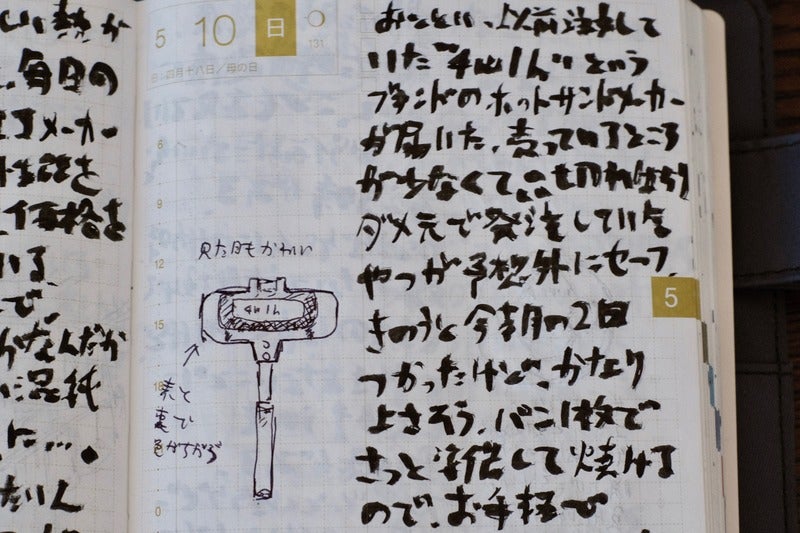 しい熱が
、毎日の
メーカー
性能を
価格を
いる、
で、
がなんだか
に混純
に…。
たいん
5 10 日
131
四月十八日／母の日
6
9
12
15
18
0
見た目もかわいい
4w1h
表と
裏で
色がちがう
おととい、以前注文して
いた"4w1h"という
ブランドのホットサンドメーカー
が届いた。売っているところ
が少なくて
ダメ元で発注していた
やつが予想外にセーフ。
きのうと今朝の2回
つかったけど、かなり
よさそう。パン1枚で
さっと準備して焼ける
ので、お手軽で
5